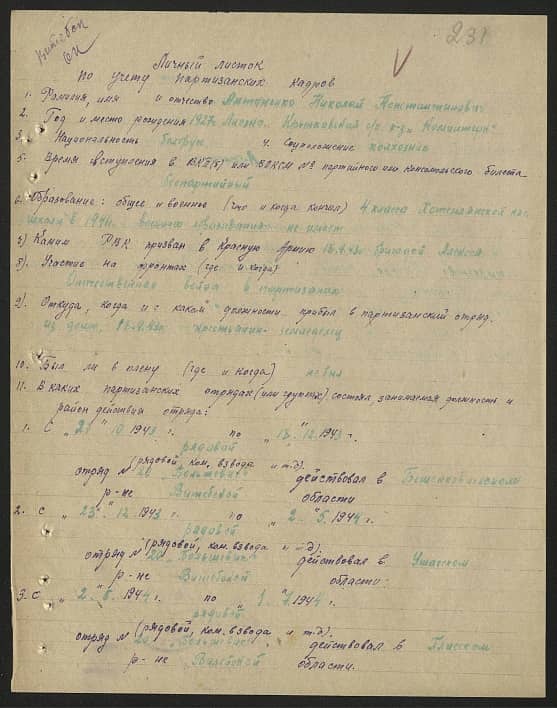 Витебск
231
Личный листок
по учету партизанских кадров
1. Фамилия, имя и отчество Антоненко Николай Константинович
2. Год и место рождения 1927г.
3. Национальность белорус 4. Соцположение колхозник
5. Время вступления в ВКП(б) или ВЛКСМ № партийного или комсомольского билета
беспартийный
6. Образование: общее и военное (что и когда кончил) 4 класса
школы в 1941г. военного образования не имеет
7) Каким РВК призван в Красную Армию
8). Участие на фронтах (где и когда)
Отечественная война в партизанах
9). Откуда, когда и с каком должности прибыл в партизанский отряд.
из дому,
10. Был ли в плену (где и когда) не был
11. В каких партизанских отрядах (или группах) состоял, занимаемая должность и
район действия отряда:
1. С „21" 10 1943 г. по „18." 12. 1943 г.
рядовой
(рядовой, ком. взвода и т.д.)
отряд № 20 „Большевик" действовал в
р-не Витебской области
2. с „23" 12 1943 г. по „2" 5. 1944 г.
рядовой
(рядовой, ком. взвода и т.д.)
отряд № 20 „Большевик" действовал в Ушачском
р-не Витебской области:
3. С „2" 5. 1944 г. по 1. 7 1944 г.
рядовой
(рядовой, ком. взвода и т.д.)
отряд № 20 „Большевик" действовал в Плисском
р-не Вилейской области.